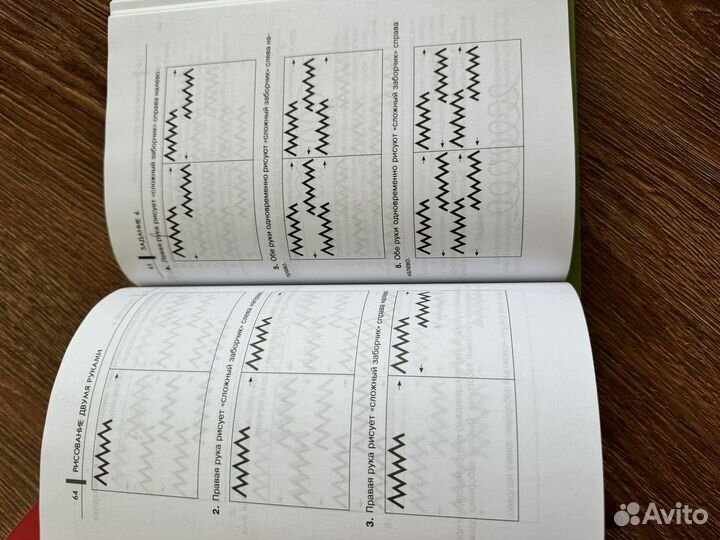 64 РИСОВАНИЕ ДВУМЯ РУКАМИ
2. Правая рука рисует «сложный заборчик» слева направо.
3. Правая рука рисует «сложный заборчик» справа налево.
ЗАДАНИЕ 6
4. Левая рука рисует «сложный заборчик» справа налево.
5. Обе руки одновременно рисуют «сложный заборчик» слева на-
право.
6. Обе руки одновременно рисуют «сложный заборчик» справа
налево.
Avito